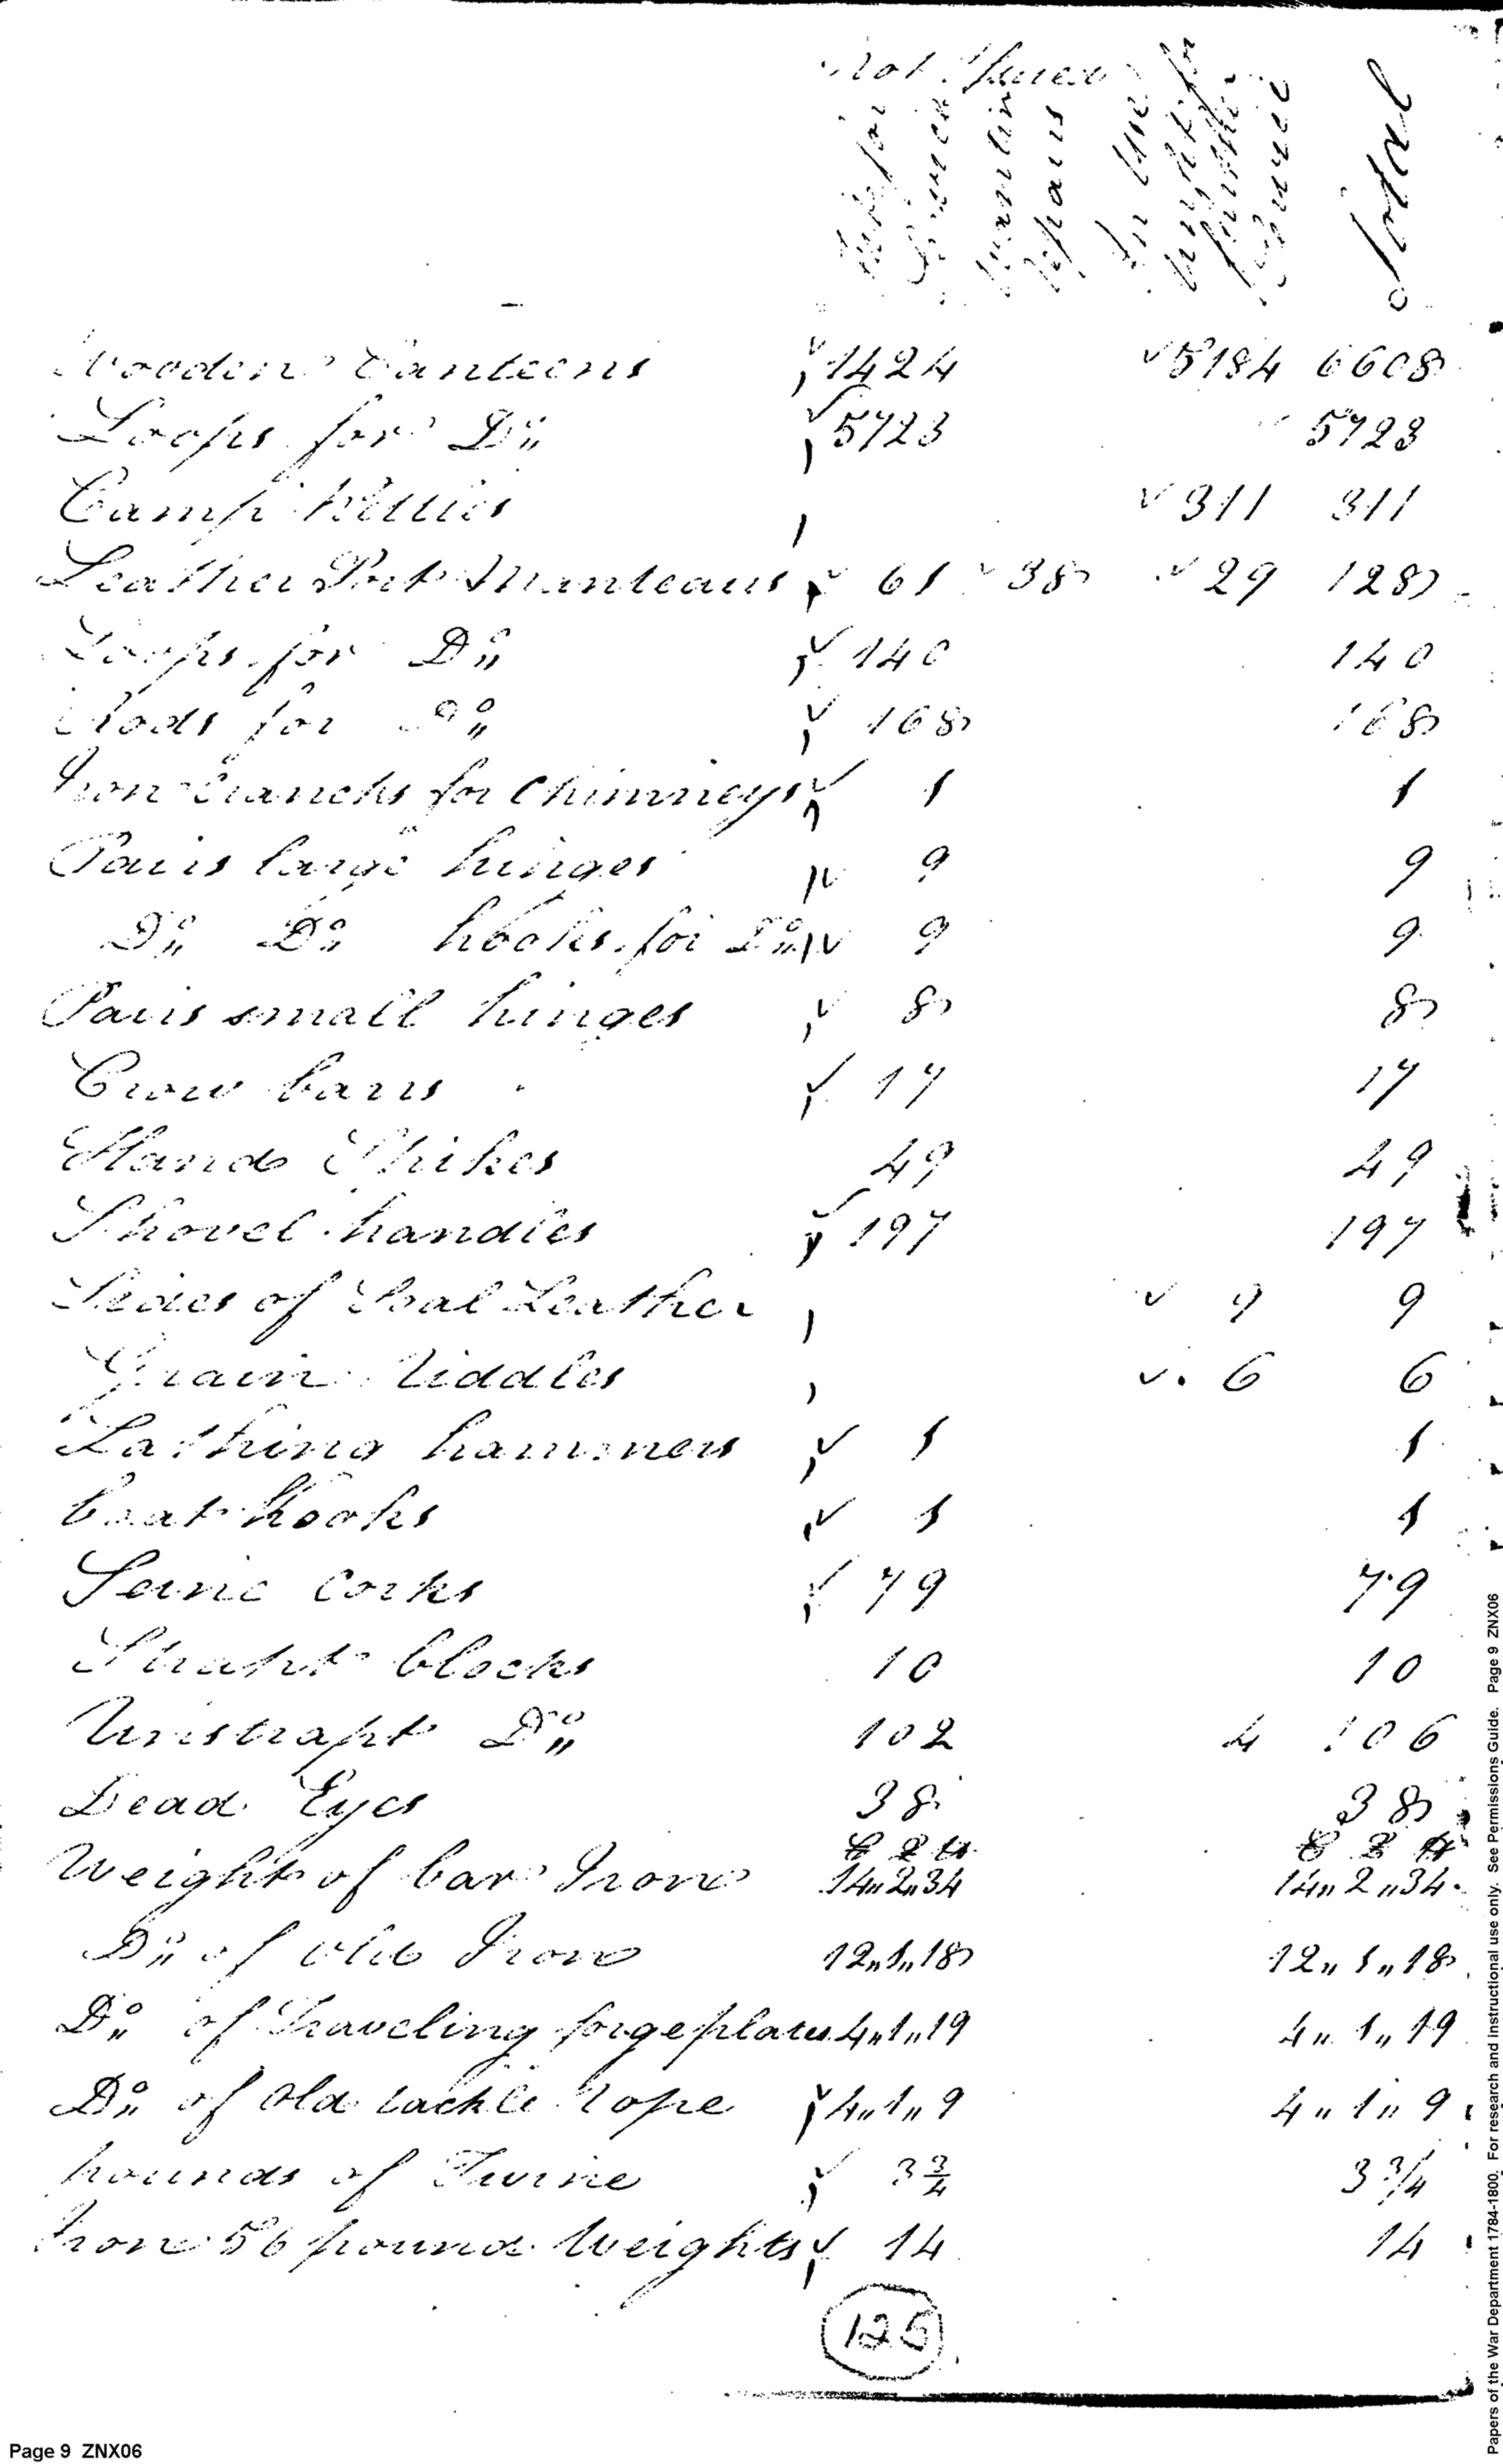 Not Issued
fit for Service
Wanting Repairs
In Use
unfit for further Service
Total
Wooden Canteens 1424 5184 6608
Loops for Do 5723 5723
Camp Kettles 311 311
Leather Port Manteaus 61 38 29 128
Loops for Do 140 140
Rods for Do 168 168
Iron Crancks for Chimneys 1 1
Pairs large hinges 9 9
Do Do hooks for Do 9 9
Pairs small hinges 8 8
Crow bars 17 17
Hand Spikes 49 49
Shovel handles 197 197
Sides of Seal Leather 9 9
Grain Riddles 6 6
Lathing hammers 1 1
boat hooks 1 1
Seine Corks 79 79
Strapt blocks 10 10
Unstrapt Do 102 4 106
Dead Eyes 38 38
C 2 lb C 2 lb
Weight of bar Iron 14,,2,,34 14,,2,,34
Do of old Iron 12,,1,,18 12,,1,,18
Do of Traveling forge plates 4,,1,,19 4,,1,,19
Do of old tackle rope 4,,1,,9 4,,1,,9
pounds of Twine 3 3/4 3 3/4
Iron 56 pound Weights 14 14
125
Page 9 ZNX06
Papers of the War Department 1784-1800. For research and instructional use only. See Permissions Guide. Page 9 ZNX06